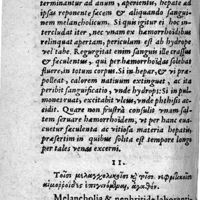 terminatur ad anum, aperientur, hepate ad
ipsas reponente fæcem & aliquando sangui-
nem melancholicum. Si quis igitur ei hoc in-
tercludat iter, nec vnam ex hæmorrhoidibus
relinquat apertam, periculum est ab hydrope
vel tabe. Regurgitat enim sanguis ille crassus
& fæculentus, qui per hæmorrhoidas solebat
fluere, in totum corpus. Si in hepar, & vi præ-
polleat, calorem natiuum extinguet, ac ita
peribit sanguificatio, vnde hydrops: Si in pul-
mones ruat, excitabit vlcus, vnde phthisis acci-
dit. Quare non frustrà consulit vnam sal-
tem seruandam incolumem, vt per hanc eua-
cuetur fæculenta ac vitiosa materia hepatis,
præsertim in quibus solita est tempore longo
per tales venas excerni.
11.
Τοῖσι μελαγχολικοῖσι καὶ τοῖσι νεφριτικοῖσιν
αἱμοῤῥοΐδες ἐπιγινόμεναι, ἀγαθόν.
Melancholia & nephritide laboranti-